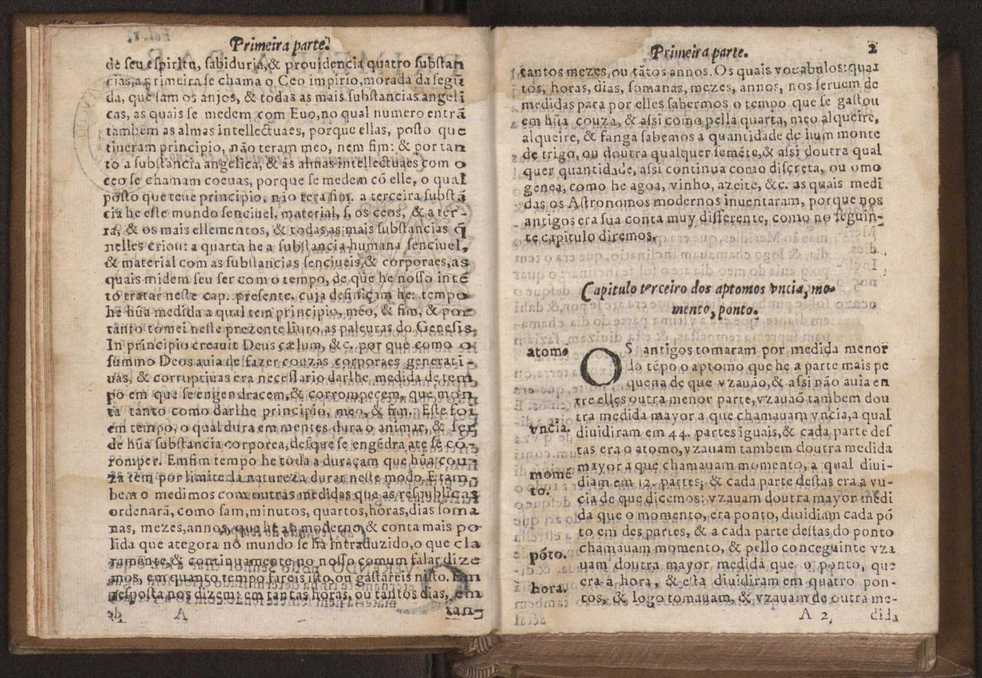 Primeira parte.
de seu espiritu, sabiduria, & prouidencia quatro substan
cias, a primeira se chama o Ceo impirio, morada da segũ
da, que sam os anjos, & todas as mais substancias angeli
cas, as quais se medem com Euo, no qual numero entrã
tambem as almas intellectuaes, porque ellas, posto que
tiueram principio, não teram meo, nem fim: & por tan
to a substancia angelica, & as almas intellectuaes com o
ceo se chamam coeuas, porque se medem cõ elle, o qual
posto que teue principio, não tera fim. a terceira substã
cia he este mundo senciuel, material, s, os ceos, & a ter-
ra, & os mais ellementos, & todas as mais substancias q̃
nelles criou: a quarta he a substancia humana senciuel,
& material com as substancias senciueis, & corporaes, as
quais midem seu ser com o tempo, de que he nosso inté
to tratar neste cap. presente, cuja definiçam he: tempo
he hũa medida a qual tem principio, meo, & fim, & por
tanto tomei nesse prezente liuro, as paleuras do Genesis,
In principio creauit Deus cælum, &c. por que como o
summo Deos auia de fazer couzas corporaes generati-
uas, & corruptiuas era necessario darlhe medida de tem
po em que se engendracem, & corrompecem, que mon
ta tanto como darlhe principio, meo, & fim. Este foi
em tempo, o qual dura em mentes dura o animar, & ser
de hũa substancia corporea, desque se engẽdra ate se co-
romper. Emfim tempo he toda a duraçam que hũa cou-
za tem por limite da natureza durar neste modo. E tam
bem o medimos com outras medidas que as respublicas
ordenarã, como sam, minutos, quartos, horas, dias soma
nas, mezes, annos, que he ao moderno & conta mais po
lida que ategora no mundo se ha intraduzido, o que cla
ramente, & continuamente no nosso comum falar dize
mos, em quanto tempo fareis isto, ou gastareis nisto. Em
resposta nos dizem: em tantas horas, ou tantos dias, em
A
tan-
Primeira parte. 2
tantos mezes, ou tãtos annos. Os quais vocabulos: quar
tos, horas, dias, somanas, mezes, annos, nos seruem de
medidas para por elles sabermos o tempo que se gastou
em hũa couza, & assi como pella quarta, meo alqueire,
alqueire, & fanga sabemos a quantidade de hum monte
de trigo, ou doutra qualquer semẽte, & assi doutra qual
quer quantidade, assi continua como discreta, ou omo
genea, como he agoa, vinho, azeite, &c. as quais medi
das os Astronomos modernos inuentaram, porque nos
antigos era sua conta muy differente, como no seguin-
te capitulo diremos.
Capitulo terceiro dos aptomos vncia, mo-
mento, ponto.
atomo
OS antigos tomaram por medida menor
do tẽpo o aptomo que he a parte mais pe
quena de que vzauão, & assi não auia en
tre elles outra menor parte, vzauaõ tambem dou
tra medida mayor a que chamauam vncia, a qual
vncia.
diuidiram em 44. partes iguais, & cada parte des
tas era o atomo, vzauam tambem doutra medida
mayor a que chamauam momento, a qual diui-
momẽ
diam em 12. partes, & cada parte destas era a vn-
to.
cia de que dicemos: vzauam doutra mayor medi
da que o momento, era ponto, diuidiam cada põ
to em des partes, & a cada parte destas do ponto
chamauam momento, & pello conceguinte vza
põto.
uam doutra mayor medida que o ponto, que
era a hora, & esta diuidiram em quatro pon-
hora.
tos, & logo tomauam, & vzauam doutra me-
A 2,
dida